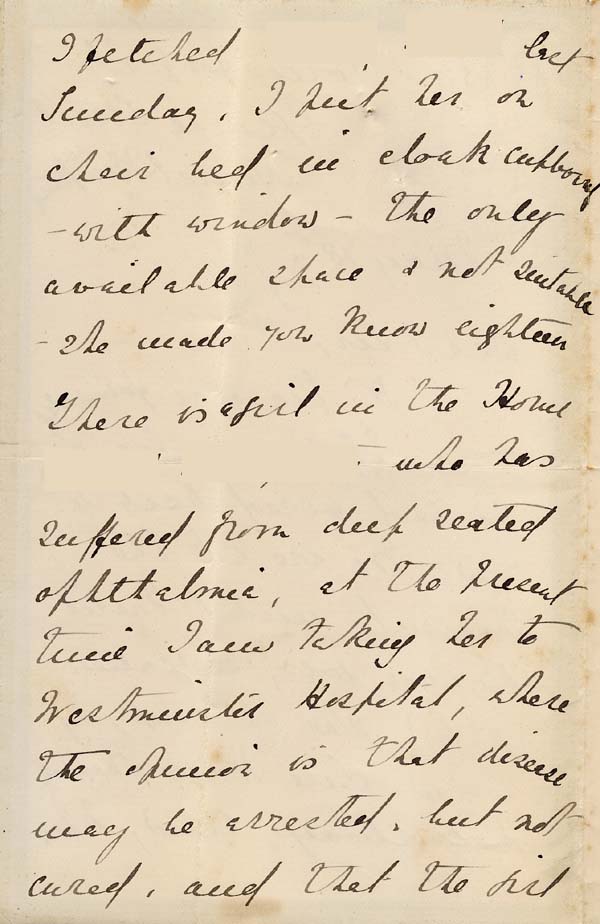 I fetched last
Sunday, I put her on
chair bed in cloak cupboard
- with window - the only
available space & not suitable
- she made you know eighteen
There is a girl in the Home
- who has
suffered from deep seated
ophthalmia, at the present
time I am taking her to
Westminster Hospital, where
the opinion is that disease
may be arrested, but not
cured, and that the girl